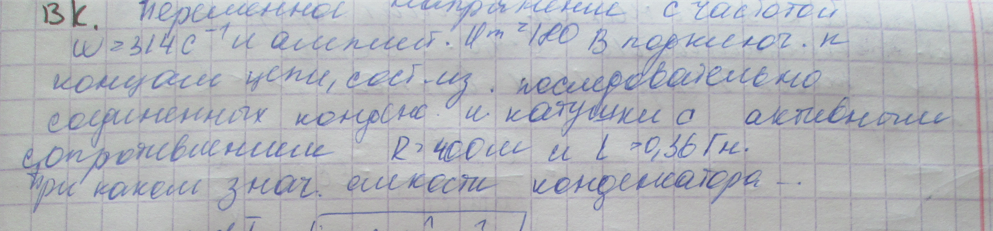 ВК. Переменное напряжение с частотой
ω=314с⁻¹ и амплит. Um=180 В подключ. к
концам цепи, сост-из. последовательно
соединенных конденс. и катушки с активным
сопротивлением R=40Ом и L=0,36Гн.
При каком знач. емкости конденсатора ...